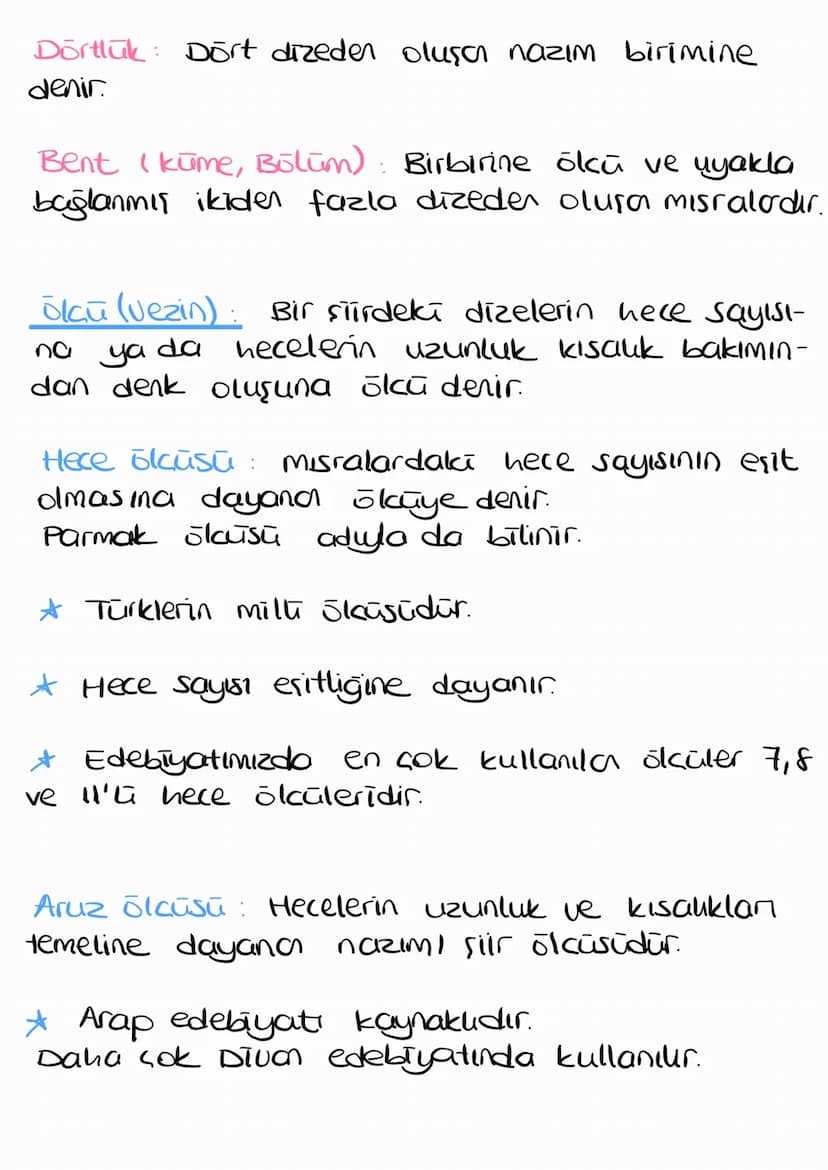 Dörtlük : Dört dizeden oluşan nazım birimine
denir.
Bent (küme, Bölüm) : Birbirine ölçü ve uyakla
bağlanmış ikiden fazla dizeden oluşan mısralardır.
Ölçü (vezin) : Bir şiirdeki dizelerin hece sayısı-
na ya da hecelerin uzunluk kısalık bakımın-
dan denk oluşuna ölçü denir.
Hece ölçüsü : mısralardaki hece sayısının eşit
olmasına dayanan ölçüye denir.
Parmak ölçüsü adıyla da bilinir.
★ Türklerin milli ölçüsüdür.
★ Hece sayısı eşitliğine dayanır.
★ Edebiyatımızda en çok kullanılan ölçüler 7,8
ve 11'li hece ölçüleridir.
Aruz ölçüsü : Hecelerin uzunluk ve kısalıkları
temeline dayanan nazım/ şiir ölçüsüdür.
★ Arap edebiyatı kaynaklıdır.
Daha çok Divan edebiyatında kullanılır.